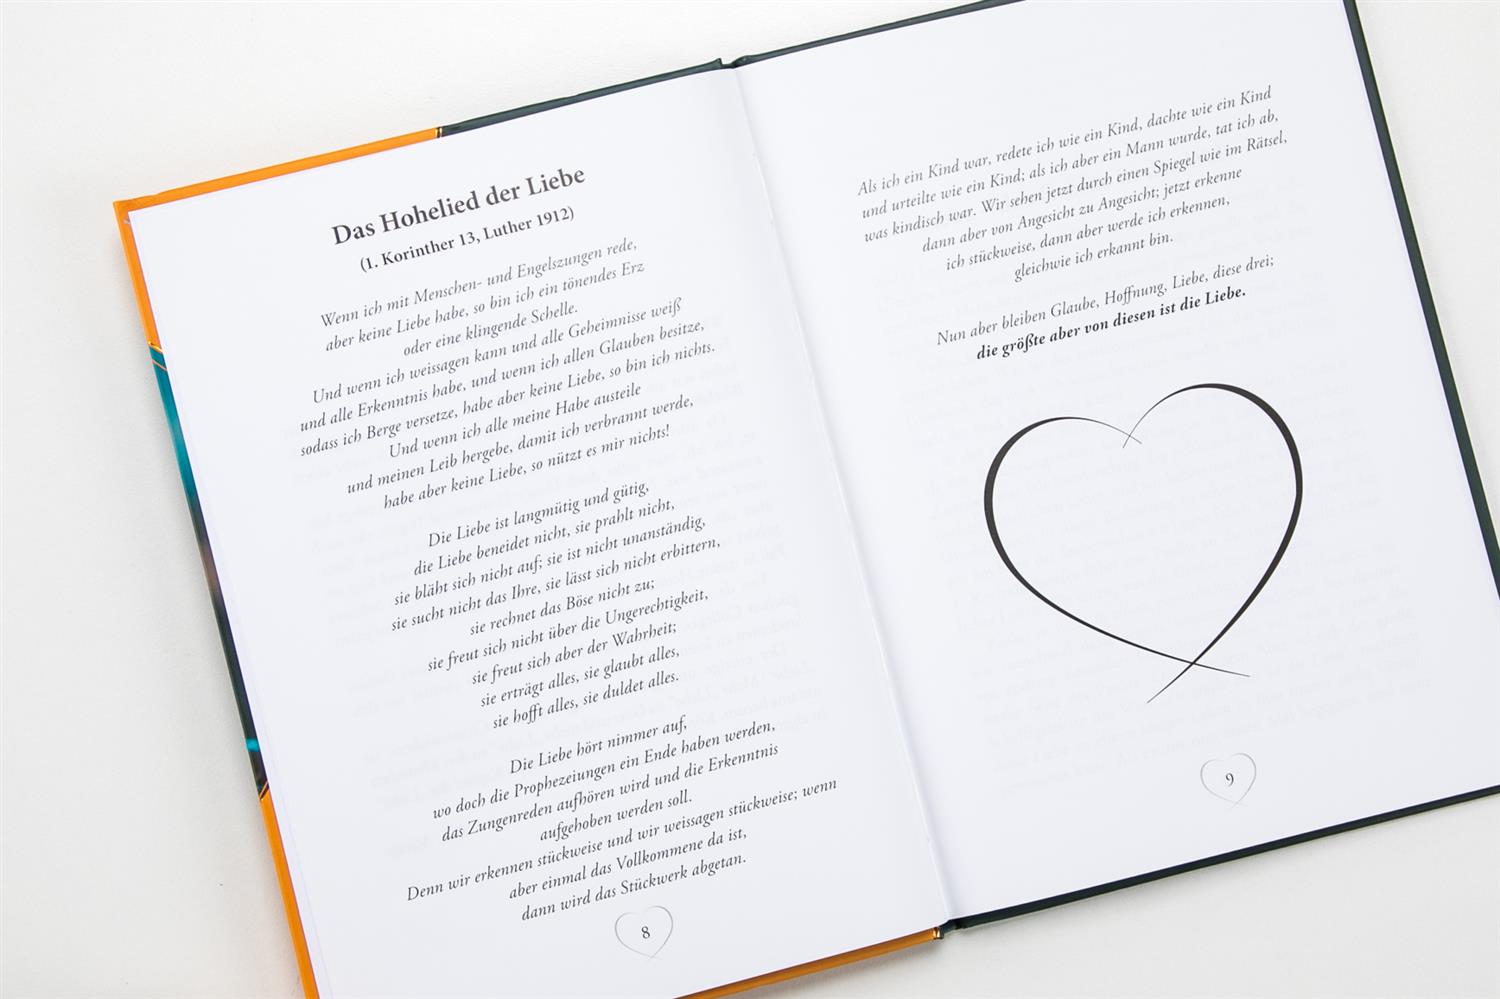 Das Hohelied der Liebe
(1. Korinther 13, Luther 1912)
Wenn ich mit Menschen- und Engelszungen rede,
aber keine Liebe habe, so bin ich ein tönendes Erz
oder eine klingende Schelle.
Und wenn ich weissagen kann und alle Geheimnisse weiß
und alle Erkenntnis habe, und wenn ich allen Glauben besitze,
sodass ich Berge versetze, habe aber keine Liebe, so bin ich nichts.
Und wenn ich alle meine Habe austeile
und meinen Leib hergebe, damit ich verbrannt werde,
habe aber keine Liebe, so nützt es mir nichts!
Die Liebe ist langmütig und gütig,
die Liebe beneidet nicht, sie prahlt nicht,
sie bläht sich nicht auf; sie ist nicht unanständig,
sie sucht nicht das Ihre, sie lässt sich nicht erbittern,
sie rechnet das Böse nicht zu;
sie freut sich nicht über die Ungerechtigkeit,
sie freut sich aber der Wahrheit;
sie erträgt alles, sie glaubt alles,
sie hofft alles, sie duldet alles.
Die Liebe hört nimmer auf,
wo doch die Prophezeiungen ein Ende haben werden,
das Zungenreden aufhören wird und die Erkenntnis
aufgehoben werden soll.
Denn wir erkennen stückweise und wir weissagen stückweise; wenn
aber einmal das Vollkommene da ist,
dann wird das Stückwerk abgetan.
8
Als ich ein Kind war, redete ich wie ein Kind, dachte wie ein Kind
und urteilte wie ein Kind; als ich aber ein Mann wurde, tat ich ab,
was kindisch war. Wir sehen jetzt durch einen Spiegel wie im Rätsel,
dann aber von Angesicht zu Angesicht; jetzt erkenne
ich stückweise, dann aber werde ich erkennen,
gleichwie ich erkannt bin.
Nun aber bleiben Glaube, Hoffnung, Liebe, diese drei;
die größte aber von diesen ist die Liebe.
9